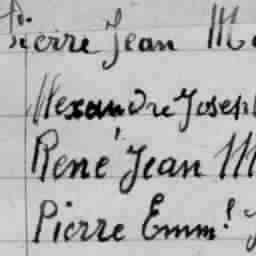 Pierre Jean M
Alexandre Joseph
René Jean M
Pierre Emm!